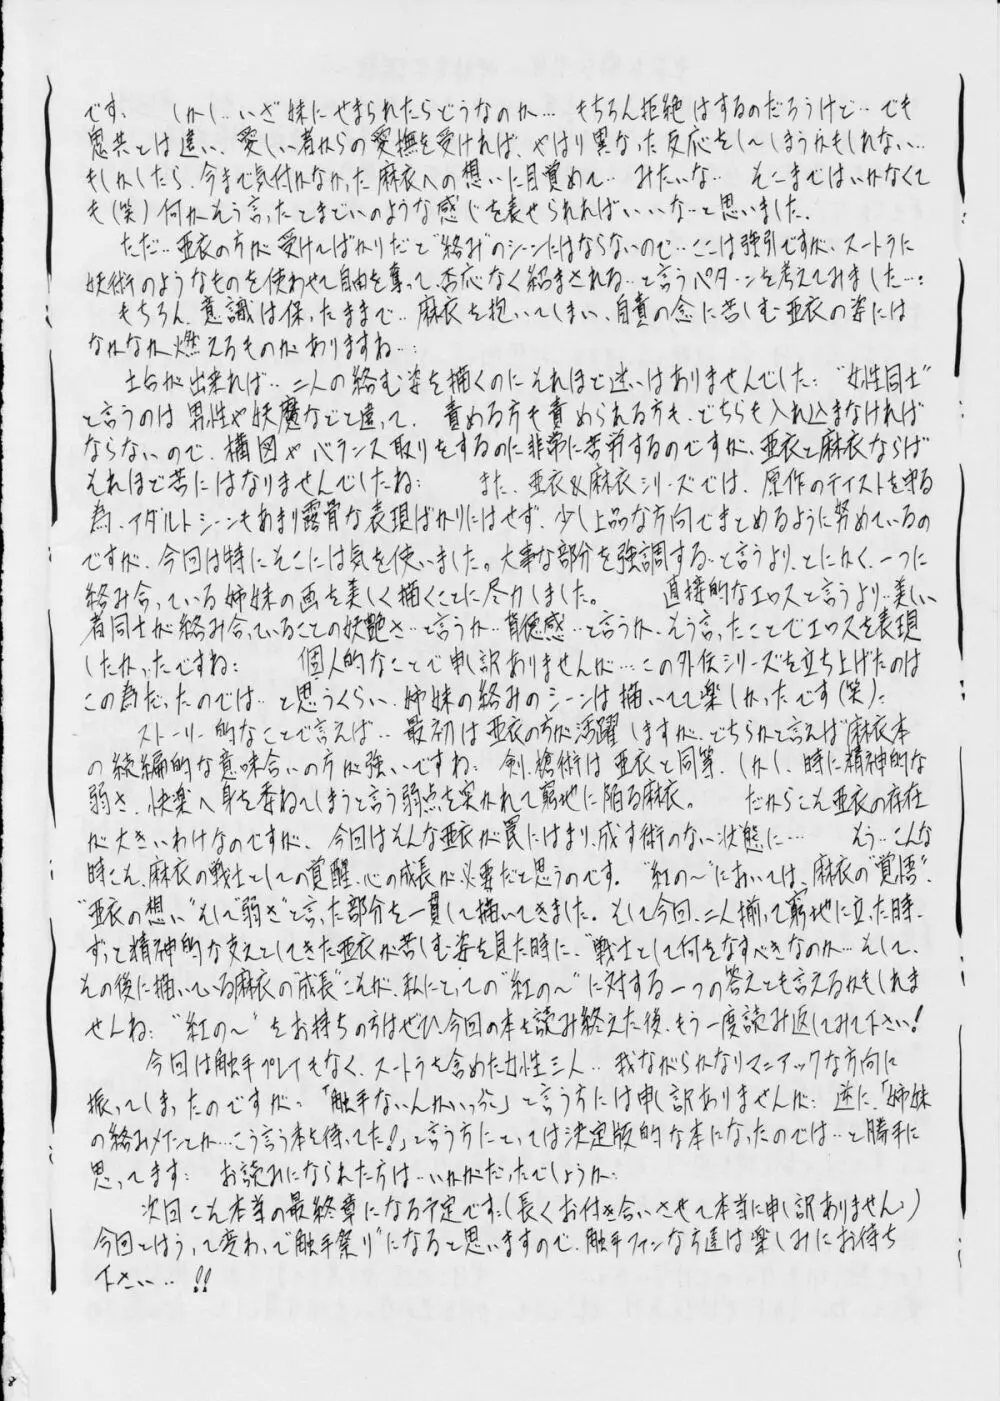 です。　しかし‥いざ妹にせまられたらどうなのか…　もちろん拒絶はするのだろうけど‥でも
鬼共とは違い、愛しい者からの愛撫を受ければ、やはり異なった反応をしてしまうかもしれない…
もしかしたら、今まで気付かなかった麻衣への想いに目覚めて‥みたいな‥　そこまではいかなくて
も(笑)何かそう言ったとまどいのような感じを表せられればいいな～と思いました。
ただ‥亜衣の方が受けてばかりだと“絡み”のシーンにはならないので‥ここは強引ですが、スートラに
妖術のようなものを使わせて自由を奪って、否応なく絡まされる‥と言うパターンを考えてみました…：
もちろん、意識は保ったままで‥麻衣を抱いてしまい、自責の念に苦しむ亜衣の姿には
なかなか燃えるものがありますね…：
土台が出来れば‥二人の絡む姿を描くのにそれほど迷いはありませんでした：“女性同士”
と言うのは男性や妖魔などと違って、責める方も責められる方も、どちらも入れ込まなければ
ならないので、構図やバランス取りをするのに非常に苦労するのですが、亜衣と麻衣ならば
それほど苦にはなりませんでしたね：　また、亜衣&麻衣シリーズでは、原作のテイストを守る
為、アダルトシーンもあまり露骨な表現ばかりにはせず、少し上品な方向でまとめるように努めているの
ですが、今回は特にそこには気を使いました。大事な部分を強調する‥と言うより、とにかく、一つに
絡み合っている姉妹の画を美しく描くことに尽力しました。　直接的なエロスと言うより‥美しい
者同士が絡み合っていることの妖艶さ‥と言うか‥背徳感‥と言うか、そう言ったことでエロスを表現
したかったですね：　個人的なことで申し訳ありませんが…この外伝シリーズを立ち上げたのは
この為だったのでは‥と思うくらい、姉妹の絡みのシーンは描いてて楽しかったです(笑)：
ストーリー的なことで言えば‥最初は亜衣の方が活躍しますが、どちらかと言えば“麻衣本”
の続編的な意味合いの方が強いですね：　剣、槍術は亜衣と同等、しかし、時に精神的な
弱さ、快楽へ身を委ねてしまうと言う弱点を突かれて窮地に陥る麻衣。　だからこそ亜衣の存在
が大きいわけなのですが、今回はそんな亜衣が罠にはまり、成す術のない状態に…　もう‥こんな
時こそ、麻衣の戦士としての覚醒、心の成長が必要だと思うのです。“紅の～”においては、麻衣の“覚悟”、
“亜衣の想い”そして“弱さ”と言った部分を一貫して描いてきました。そして今回、二人揃って窮地に立った時、
ずっと精神的な支えとしてきた亜衣が苦しむ姿を見た時に、“戦士として何をなすべきなのか…そして、
その後に描いている麻衣の“成長”こそが、私にとっての“紅の～”に対する一つの答えとも言えるかもしれま
せんね：“紅の～”をお持ちの方はぜひ、今回の本を読み終えた後、もう一度読み返してみて下さい！
今回は触手プレイもなく、スートラも含めた女性三人‥我ながらかなりマニアックな方向に
振ってしまったのですが：「触手ないんかいっ!」と言う方には申し訳ありませんが：逆に、「姉妹
の絡みメインとか…こう言う本を待ってた！」と言う方にとっては決定版的な本になったのでは‥と勝手に
思ってます：　お読みになられた方は‥いかがだったでしょうか：
次回こそ本当の最終章になる予定です：(長くお付き合いさせて本当に申し訳ありません：)
今回とはうって変わって“触手祭り”になると思いますので、触手ファンな方達は楽しみにお待ち
下さい‥!!
8